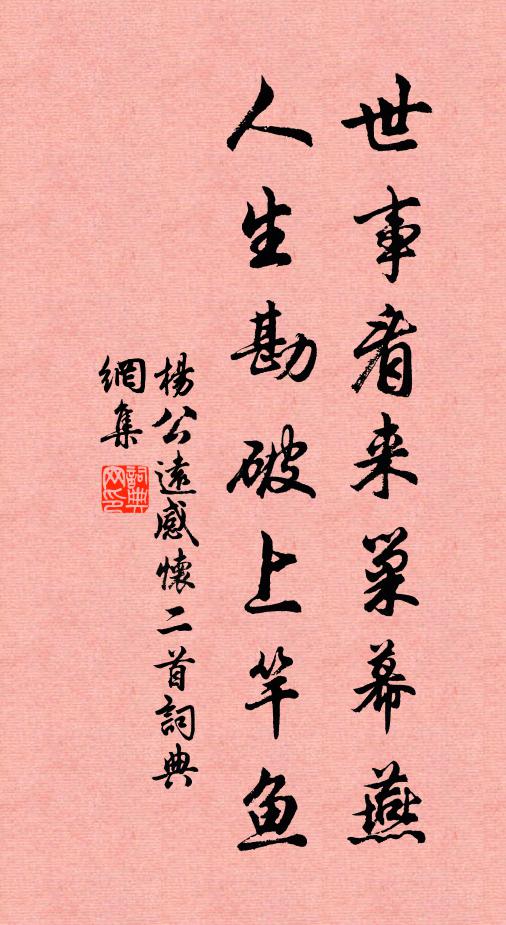 世事看来巢幕燕
人生勘破上竿鱼
楊公遠感懷二首詞典
網集
詞典
网印